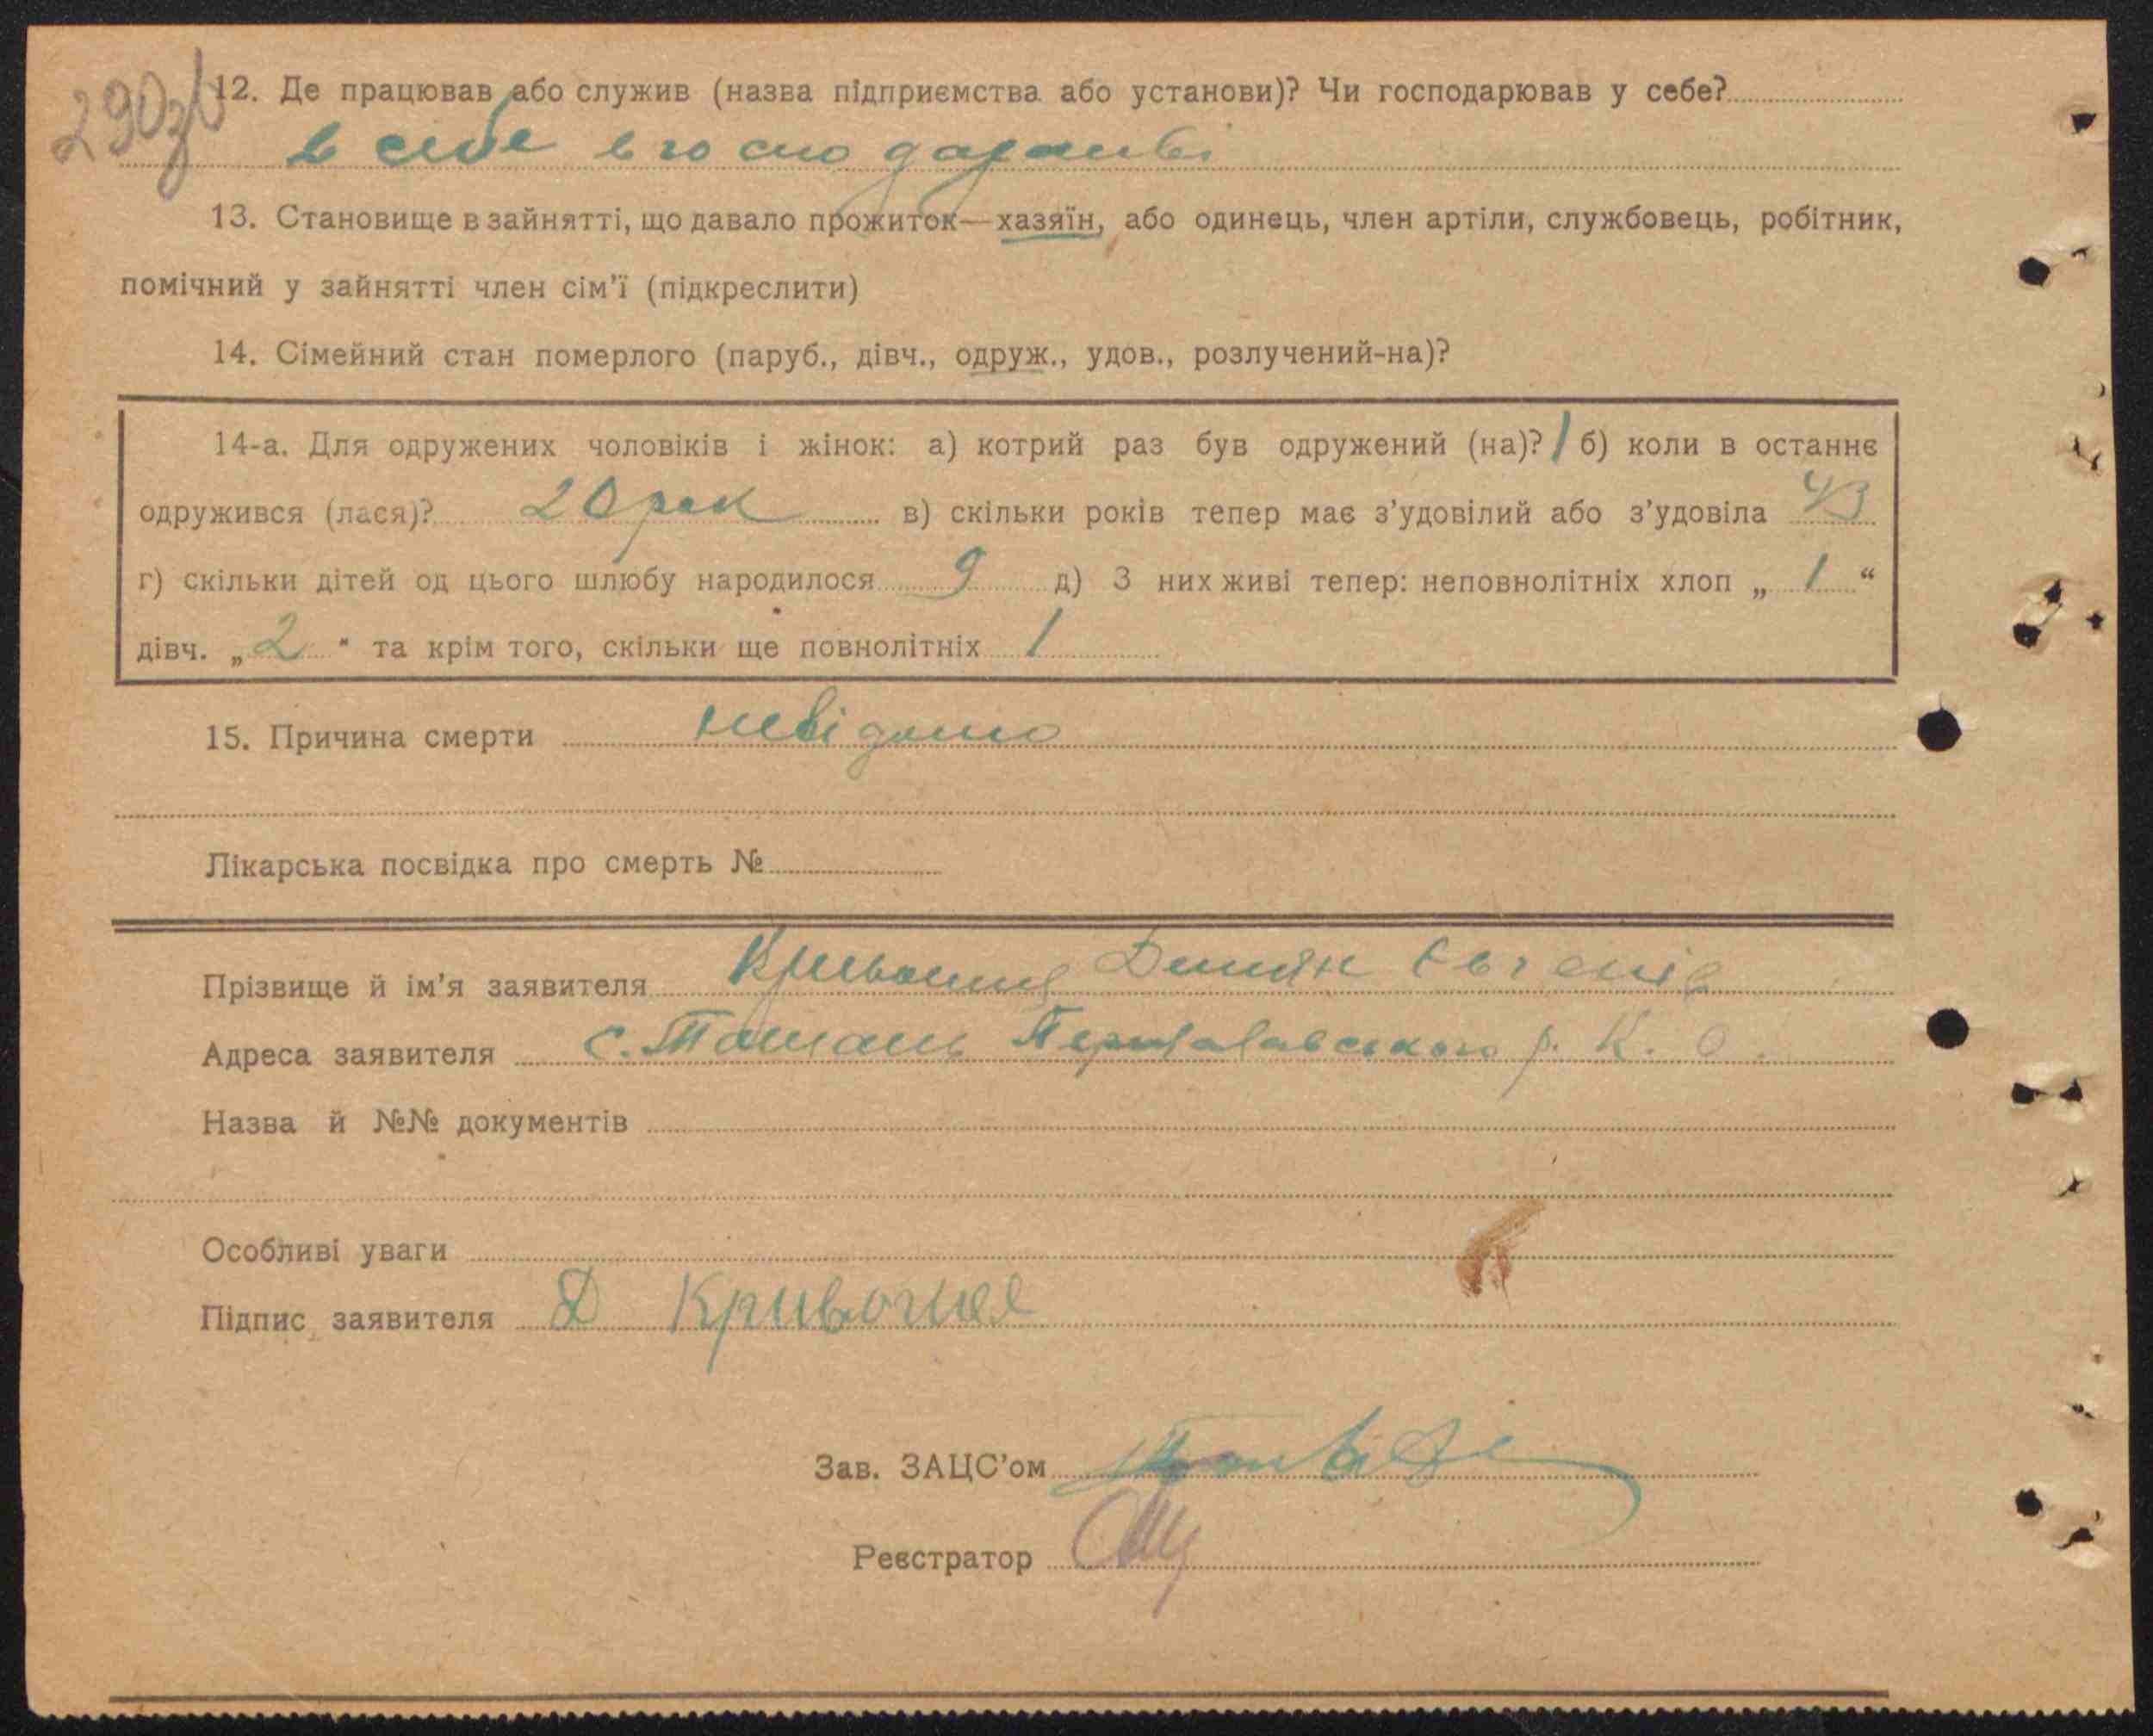 290зв
12. Де працював або служив (назва підприємства або установи)? Чи господарював у себе?
в себе в господарстві
13. Становище в зайнятті, що давало прожиток—хазяїн, або одинець, член артіли, службовець, робітник,
помічний у зайнятті член сім'ї (підкреслити)
14. Сімейний стан померлого (паруб., дівч., одруж., удов., розлучений-на)?
14-а. Для одружених чоловіків і жінок: а) котрий раз був одружений (на)? 1 б) коли в останнє
одружився (лася)? 20 рок в) скільки років тепер має з'удовілий або з'удовіла 43
г) скільки дітей од цього шлюбу народилося 9 д) З них живі тепер: неповнолітніх хлоп „ 1 “
дівч. „ 2 “ та крім того, скільки ще повнолітніх 1
15. Причина смерти невідомо
Лікарська посвідка про смерть №
Прізвище й ім'я заявителя Демян
Адреса заявителя с. Ташань р. К. О.
Назва й №№ документів
Особливі уваги
Підпис заявителя Д
Зав. ЗАЦС'ом
Реєстратор